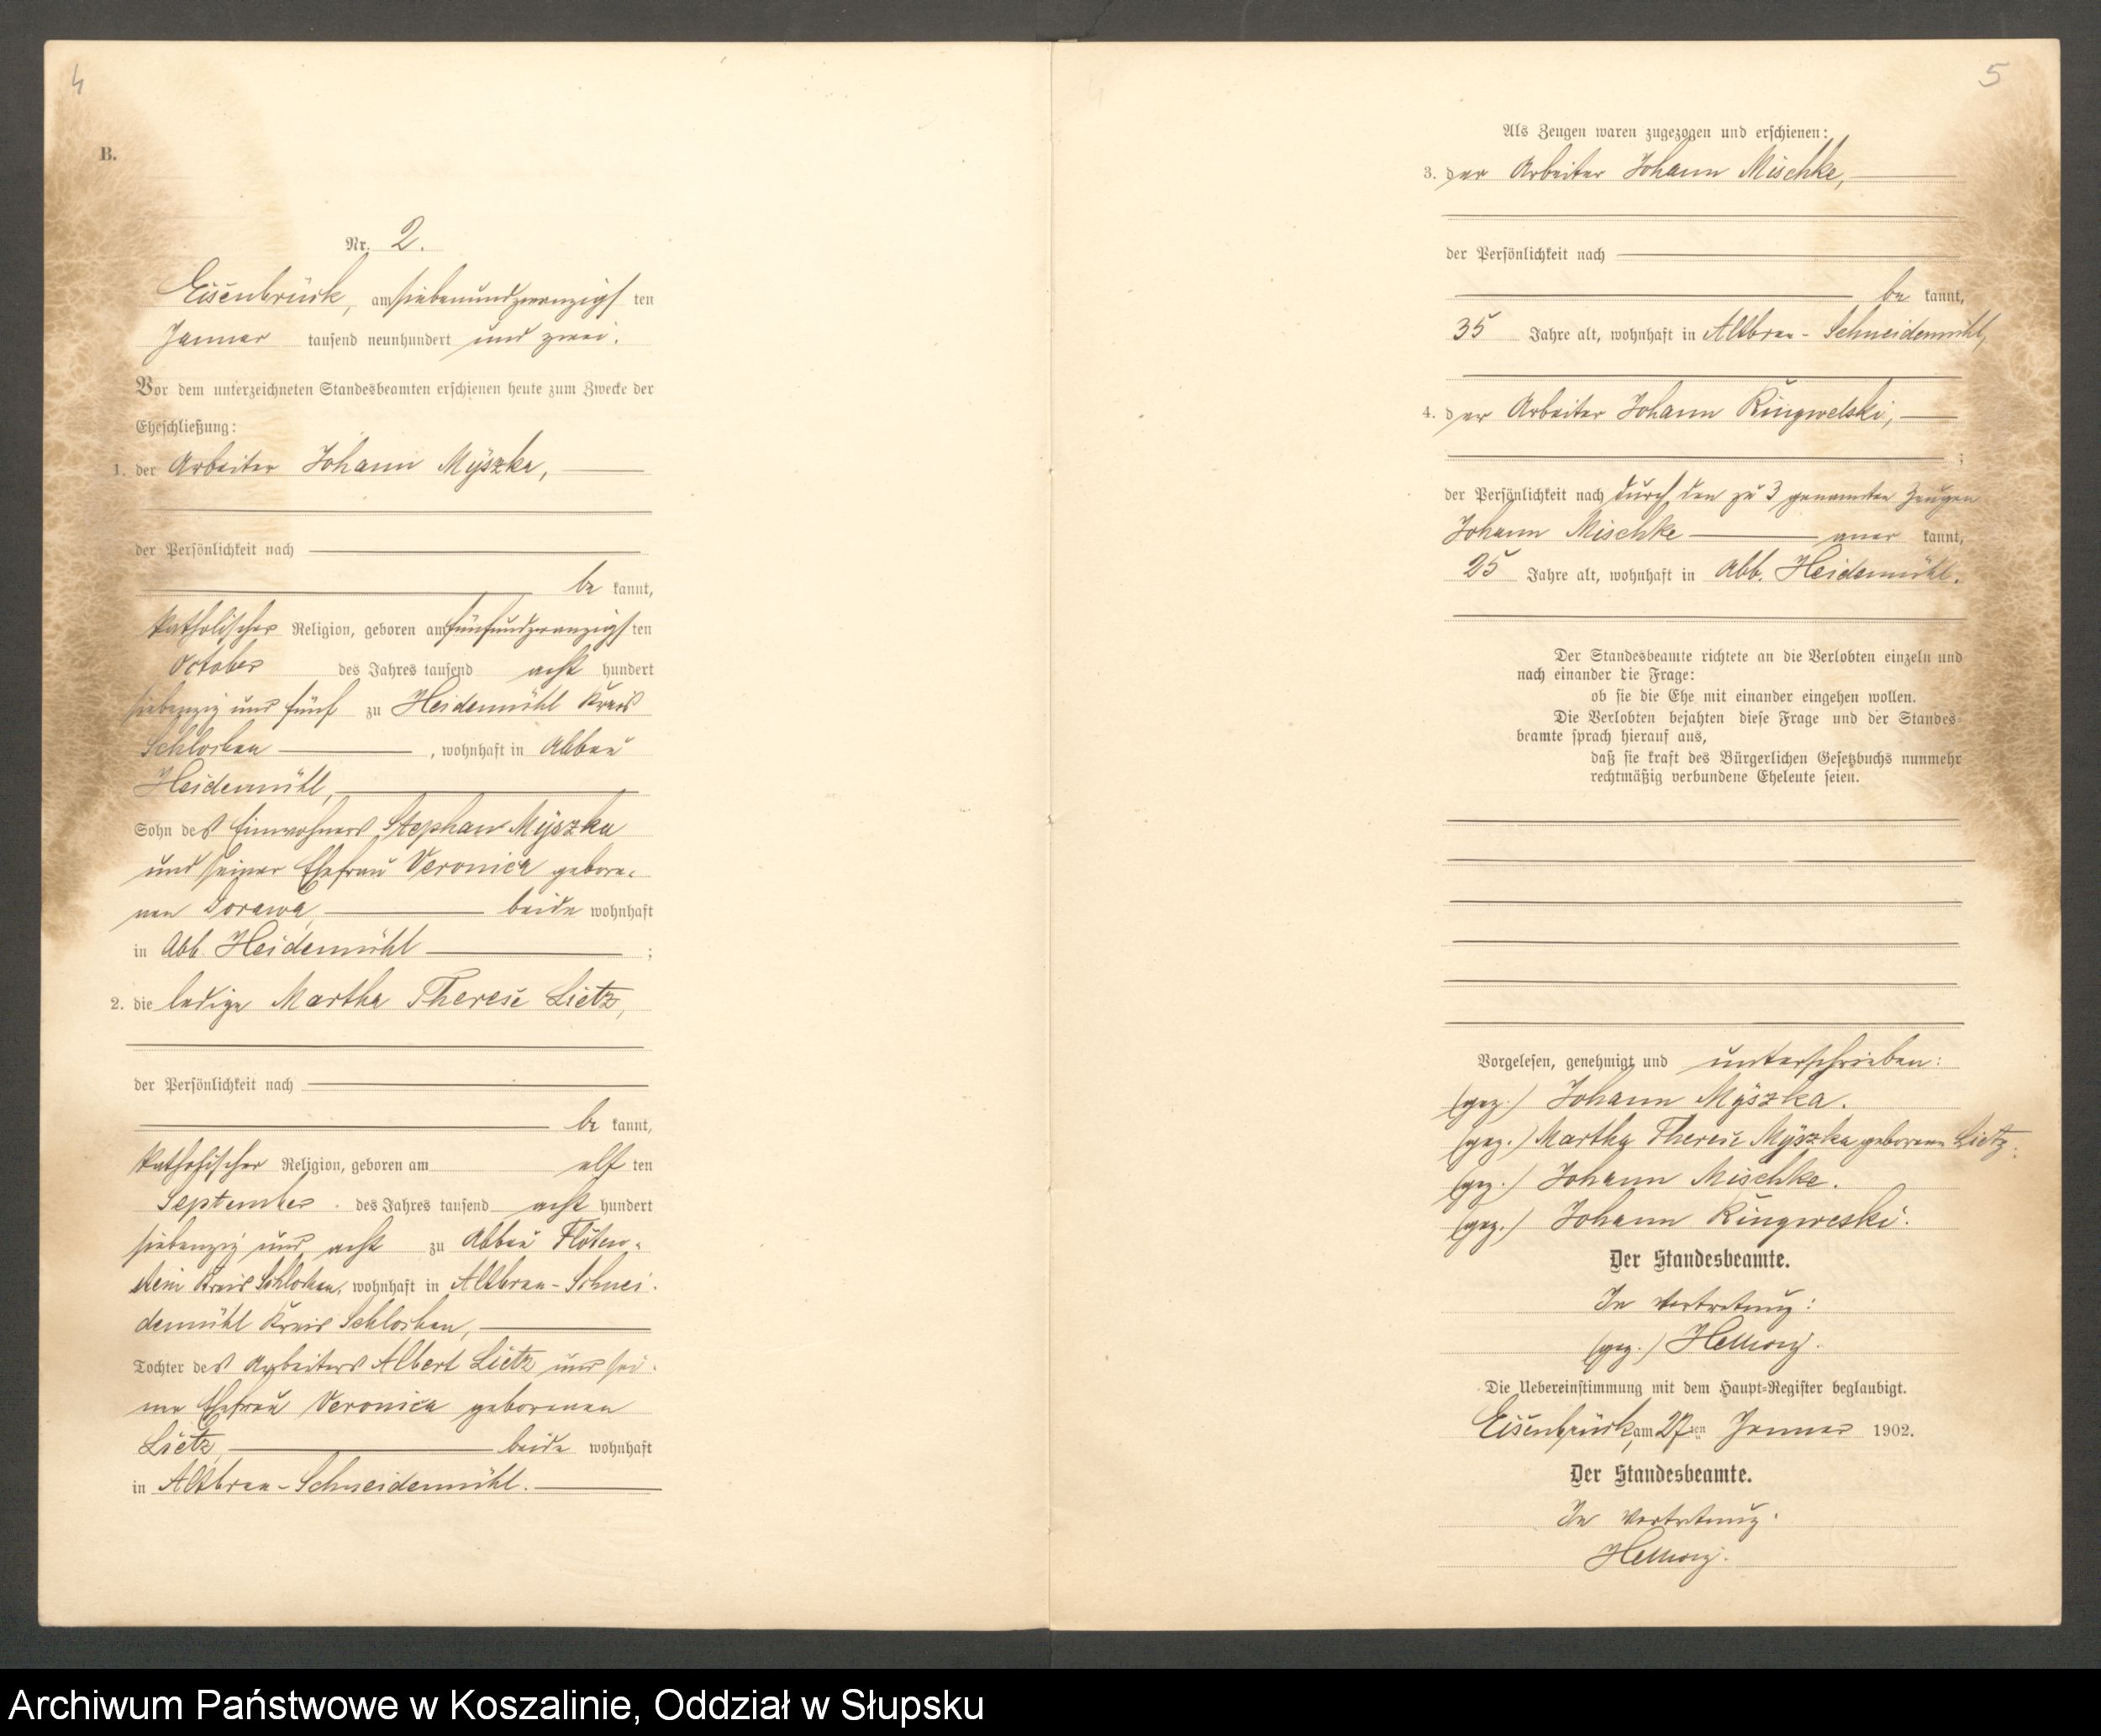 4
B.
Nr. 2.
Eisenbrück, am siebenundzwanzigsten
Januar tausend neunhundert und zwei.
Vor dem unterzeichneten Standesbeamten erschienen heute zum Zwecke der
Eheschließung:
1. der Arbeiter Johann Myszka,
der Persönlichkeit nach
be kannt,
katholischer Religion, geboren am fünfundzwanzigsten
October des Jahres tausend acht hundert
siebenzig und fünf zu Heidemühl Kreis
Schlochau, wohnhaft in Abbau
Heidemühl,
Sohn des Einwohners Stephan Myszka
und seiner Ehefrau Veronica gebore-
nen beide wohnhaft
in Abb. Heidemühl ;
2. die ledige Martha Therese Lietz,
der Persönlichkeit nach
be kannt,
katholischer Religion, geboren am elf ten
September des Jahres tausend acht hundert
siebenzig und acht zu Abbau Flöten-
stein Kreis Schlochau, wohnhaft in Altbrau-Schnei-
demühl Kreis Schlochau,
Tochter des Arbeiters Albert Lietz und sei-
ner Ehefrau Veronica geborenen
Lietz, beide wohnhaft
in Altbrau-Schneidemühl.
5
Als Zeugen waren zugezogen und erschienen:
3. der Arbeiter Johann Mischke,
der Persönlichkeit nach
be kannt,
35 Jahre alt, wohnhaft in Altbrau-Schneidemühl,
4. der Arbeiter Johann Ringwelski,
;
der Persönlichkeit nach durch den zu 3 genannten Zeugen
Johann Mischke aner kannt,
25 Jahre alt, wohnhaft in Abb. Heidemühl.
Der Standesbeamte richtete an die Verlobten einzeln und
nach einander die Frage:
ob sie die Ehe mit einander eingehen wollen.
Die Verlobten bejahten diese Frage und der Standes-
beamte sprach hierauf aus,
daß sie kraft des Bürgerlichen Gesetzbuchs nunmehr
rechtmäßig verbundene Eheleute seien.
Vorgelesen, genehmigt und unterschrieben:
(gez.) Johann Myszka.
(gez.) Martha Therese Myszka geborene Lietz.
(gez.) Johann Mischke.
(gez.) Johann Ringweski.
Der Standesbeamte.
In Vertretung:
(gez.) Hellwig.
Die Uebereinstimmung mit dem Haupt-Register beglaubigt.
Eisenbrück, am 27ten Januar 1902.
Der Standesbeamte.
In Vertretung.
Hellwig.
Archiwum Państwowe w Koszalinie, Oddział w Słupsku